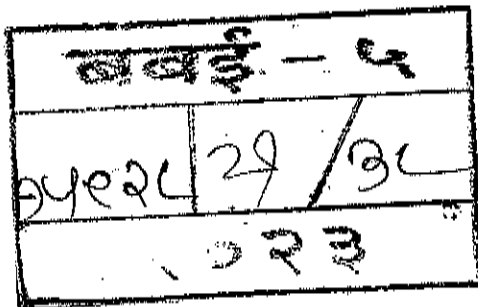 बबई - ५
७५९२८ २१ / ३८
२०२३